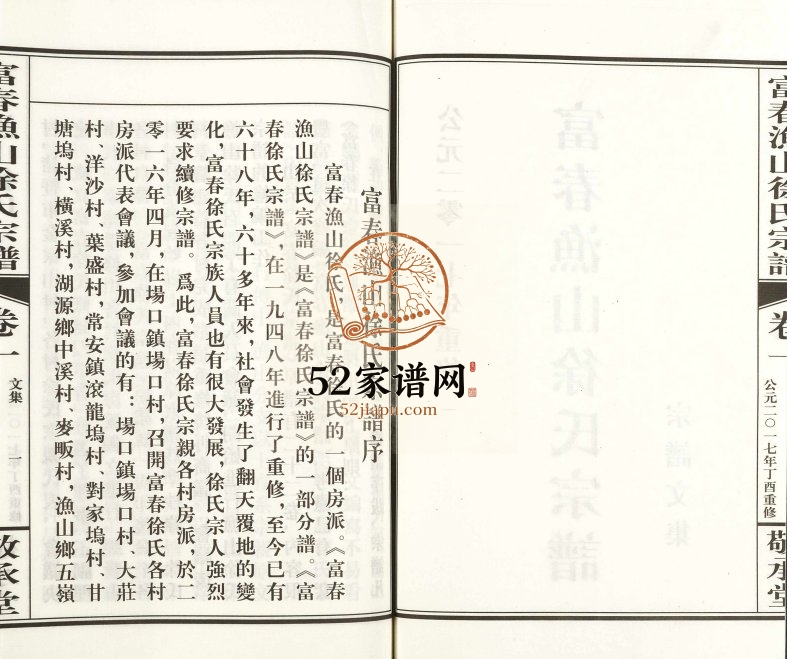 富春漁山徐氏宗譜
卷一
公元二〇一七年丁酉重修
敬承堂
富春漁山徐氏宗譜序
富春漁山徐氏,是富春徐氏的一個房派。《富春
漁山徐氏宗譜》是《富春徐氏宗譜》的一部分譜。《富
春徐氏宗譜》,在一九四八年進行了重修,至今已有
六十八年,六十多年來,社會發生了翻天覆地的變
化,富春徐氏宗族人員也有很大發展,徐氏宗人強烈
要求續修宗譜。爲此,富春徐氏宗親各村房派,於二
零一六年四月,在場口鎮場口村,召開富春徐氏各村
房派代表會議,參加會議的有:場口鎮場口村、大莊
村、洋沙村、葉盛村,常安鎮滾龍塢村、對家塢村、甘
塘塢村、橫溪村,湖源鄉中溪村、麥畈村,漁山鄉五嶺
富春漁山徐氏宗譜
卷一
文集
一
敬承堂
52家谱网
52jiapu.com